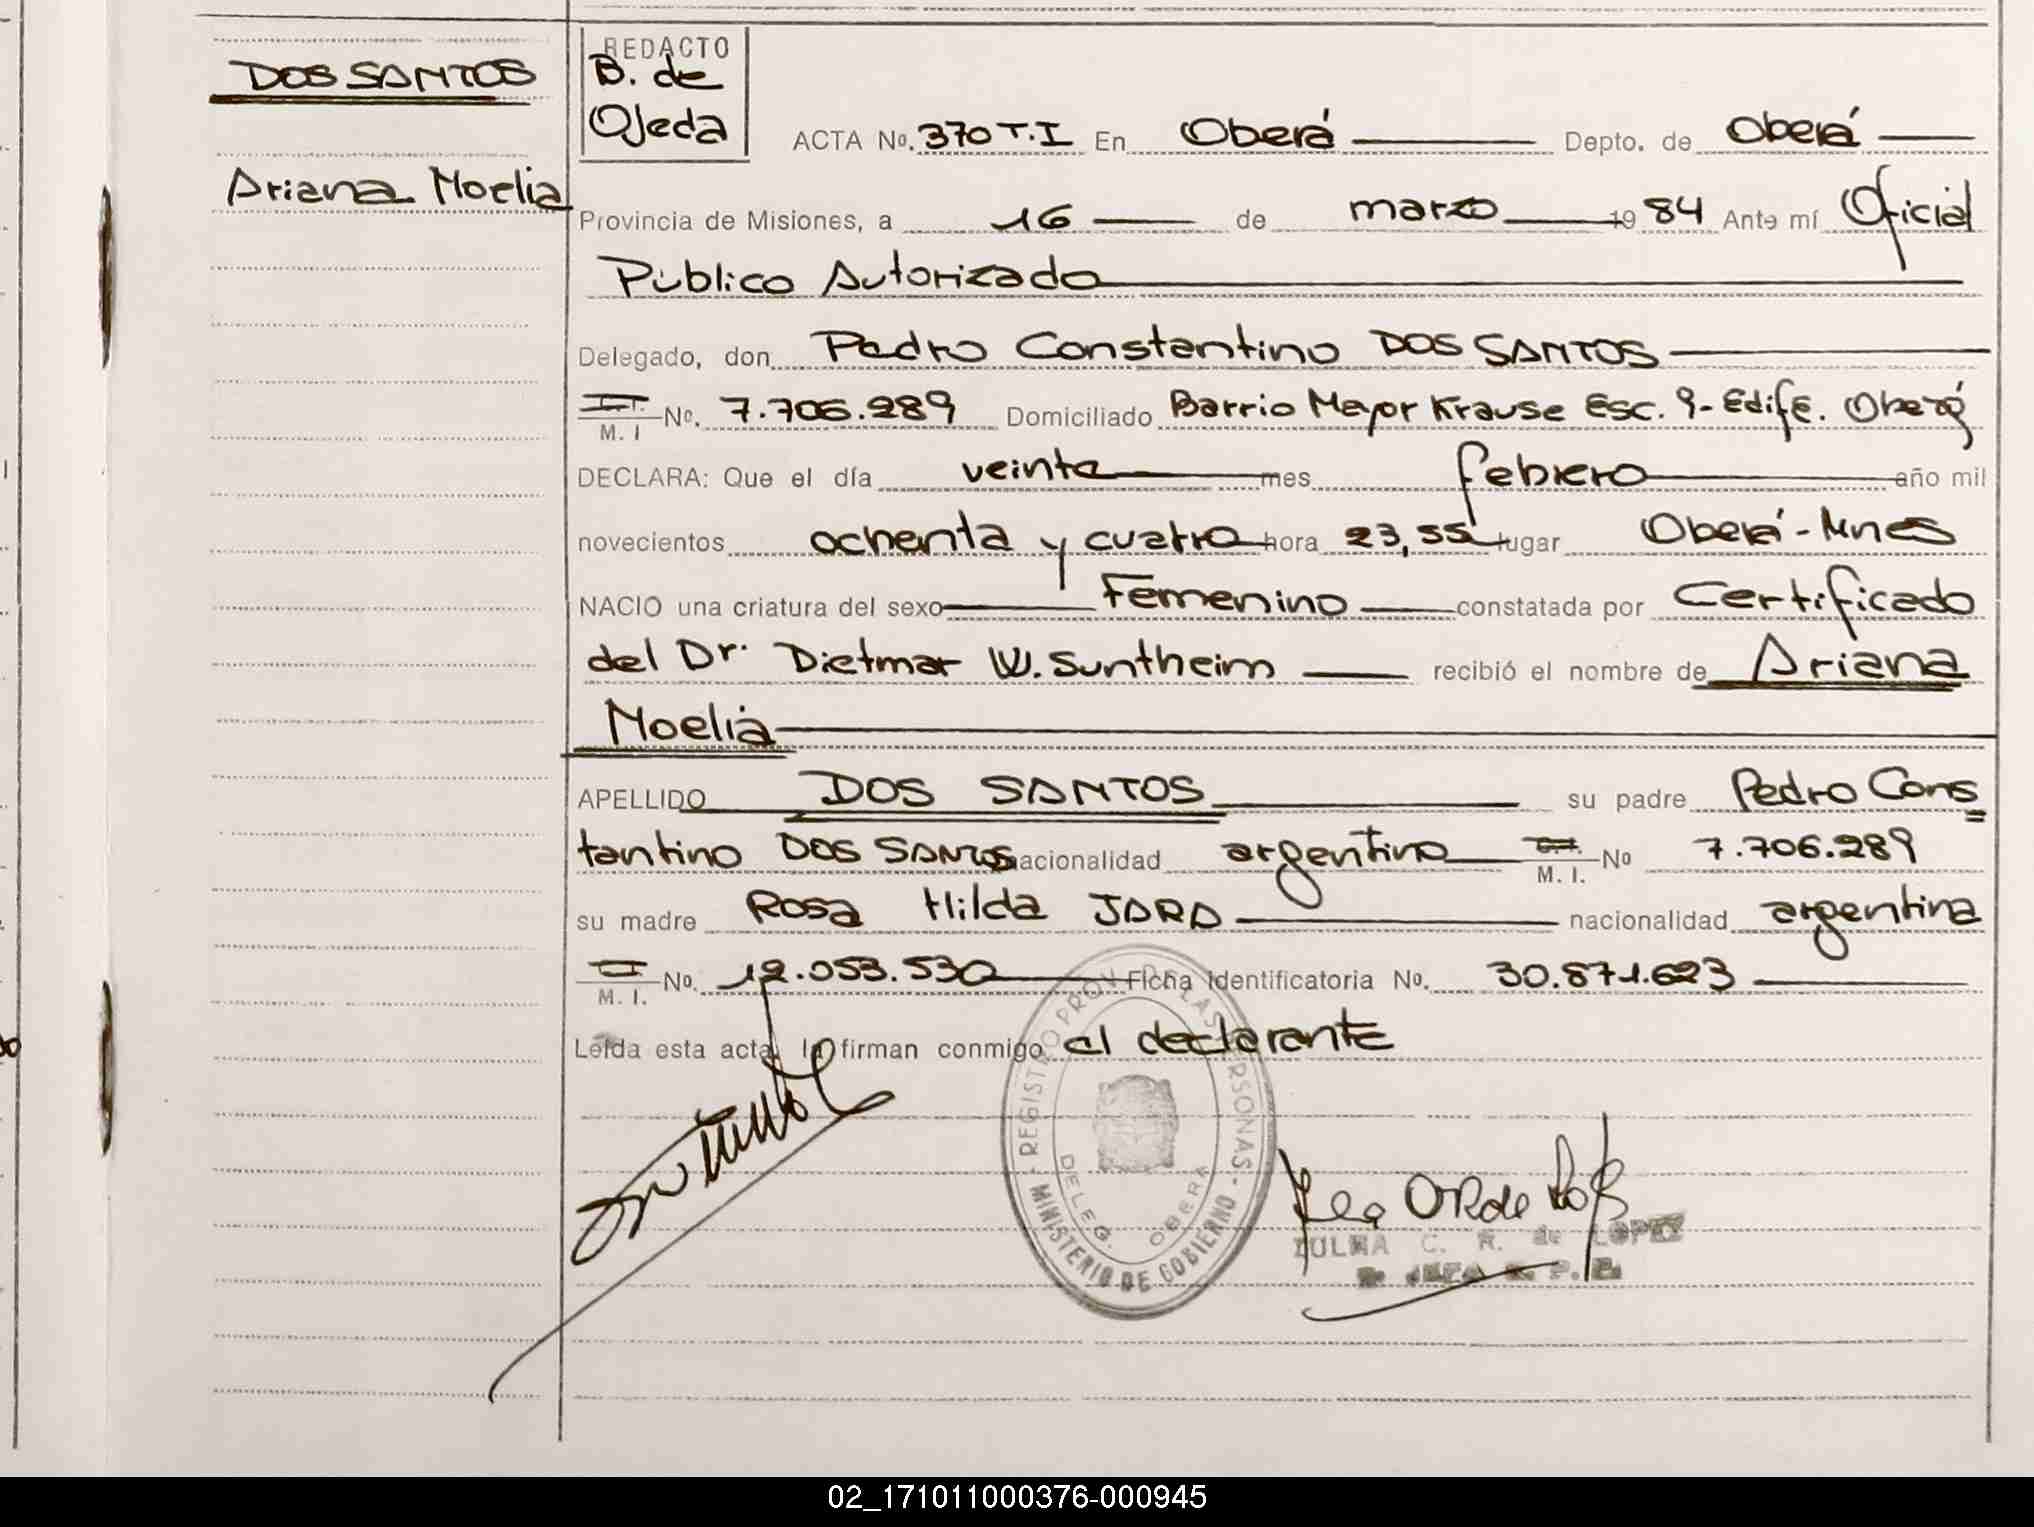 DOS SANTOS
Ariana Noelia
REDACTO
B. de
Ojeda
ACTA No. 370 T.I En Oberá Depto. de Oberá
Provincia de Misiones, a 16 de marzo 1984 Ante mí Oficial
Público Autorizado
Delegado, don Pedro Constantino DOS SANTOS
M. I No. 7.706.289 Domiciliado Barrio Mayor Krause Esc. 9- Edife. Oberá
DECLARA: Que el día veinte mes febrero año mil
novecientos ochenta y cuatro hora 23,55 lugar Oberá-Mnes
NACIO una criatura del sexo Femenino constatada por Certificado
del Dr. Dietmar W. Suntheim recibió el nombre de Ariana
Noelia
APELLIDO DOS SANTOS su padre Pedro Cons
tantino DOS SANTOS nacionalidad argentino M. I. No 7.706.289
su madre Rosa Hilda JARA nacionalidad argentina
M. I. No. 12.053.530 Ficha Identificatoria No. 30.871.623
Leída esta acta, la firman conmigo el declarante
- REGISTRO PROV. DE LAS PERSONAS -
MINISTERIO DE GOBIERNO
DELEG. OBERA
ZULMA C. R. de LOPEZ
02_171011000376-000945